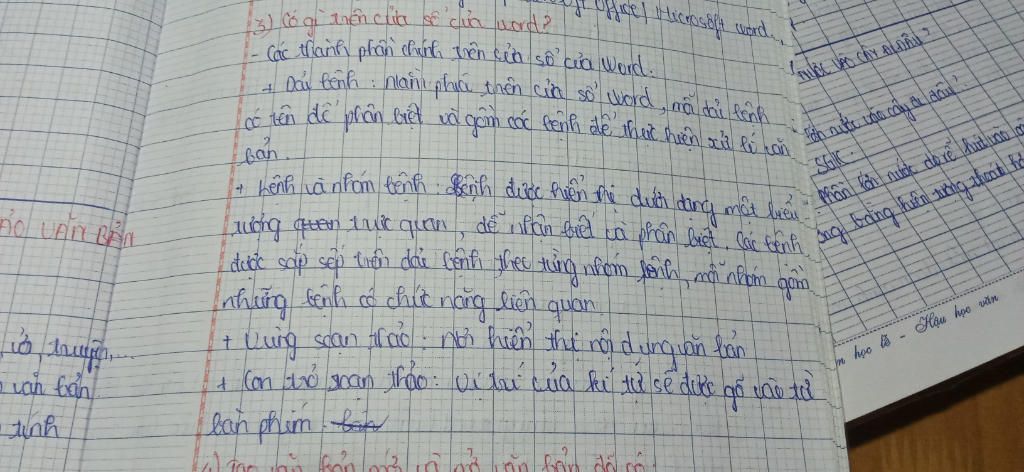 Microsoft word.
3) Có gì trên cửa sổ của word?
- Các thành phần chính trên cửa sổ của Word.
+ Dải lệnh: nằm phía trên cửa sổ word, mỗi dải lệnh
có tên để phân biệt và gồm các lệnh để thực hiện xử lí văn
bản.
+ Lệnh và nhóm lệnh: Lệnh được hiển thị dưới dạng một biểu
tượng quen trực quan, dễ nhận biết và phân biệt. Các lệnh
được sắp sếp trên dải lệnh theo từng nhóm lệnh, mỗi nhóm gồm
những lệnh có chức năng liên quan.
+ Vùng soạn thảo: nơi hiển thị nội dung văn bản
+ Con trỏ soạn thảo: vị trí của kí tự sẽ được gõ vào từ
bàn phím
ẠO VĂN BẢN
truyện,...
văn bản
tính
nước vào cây ở đâu?
SGK.
phần lớn nước do rễ hút vào
bằng hiện tượng thoát
học lễ - Hậu học văn